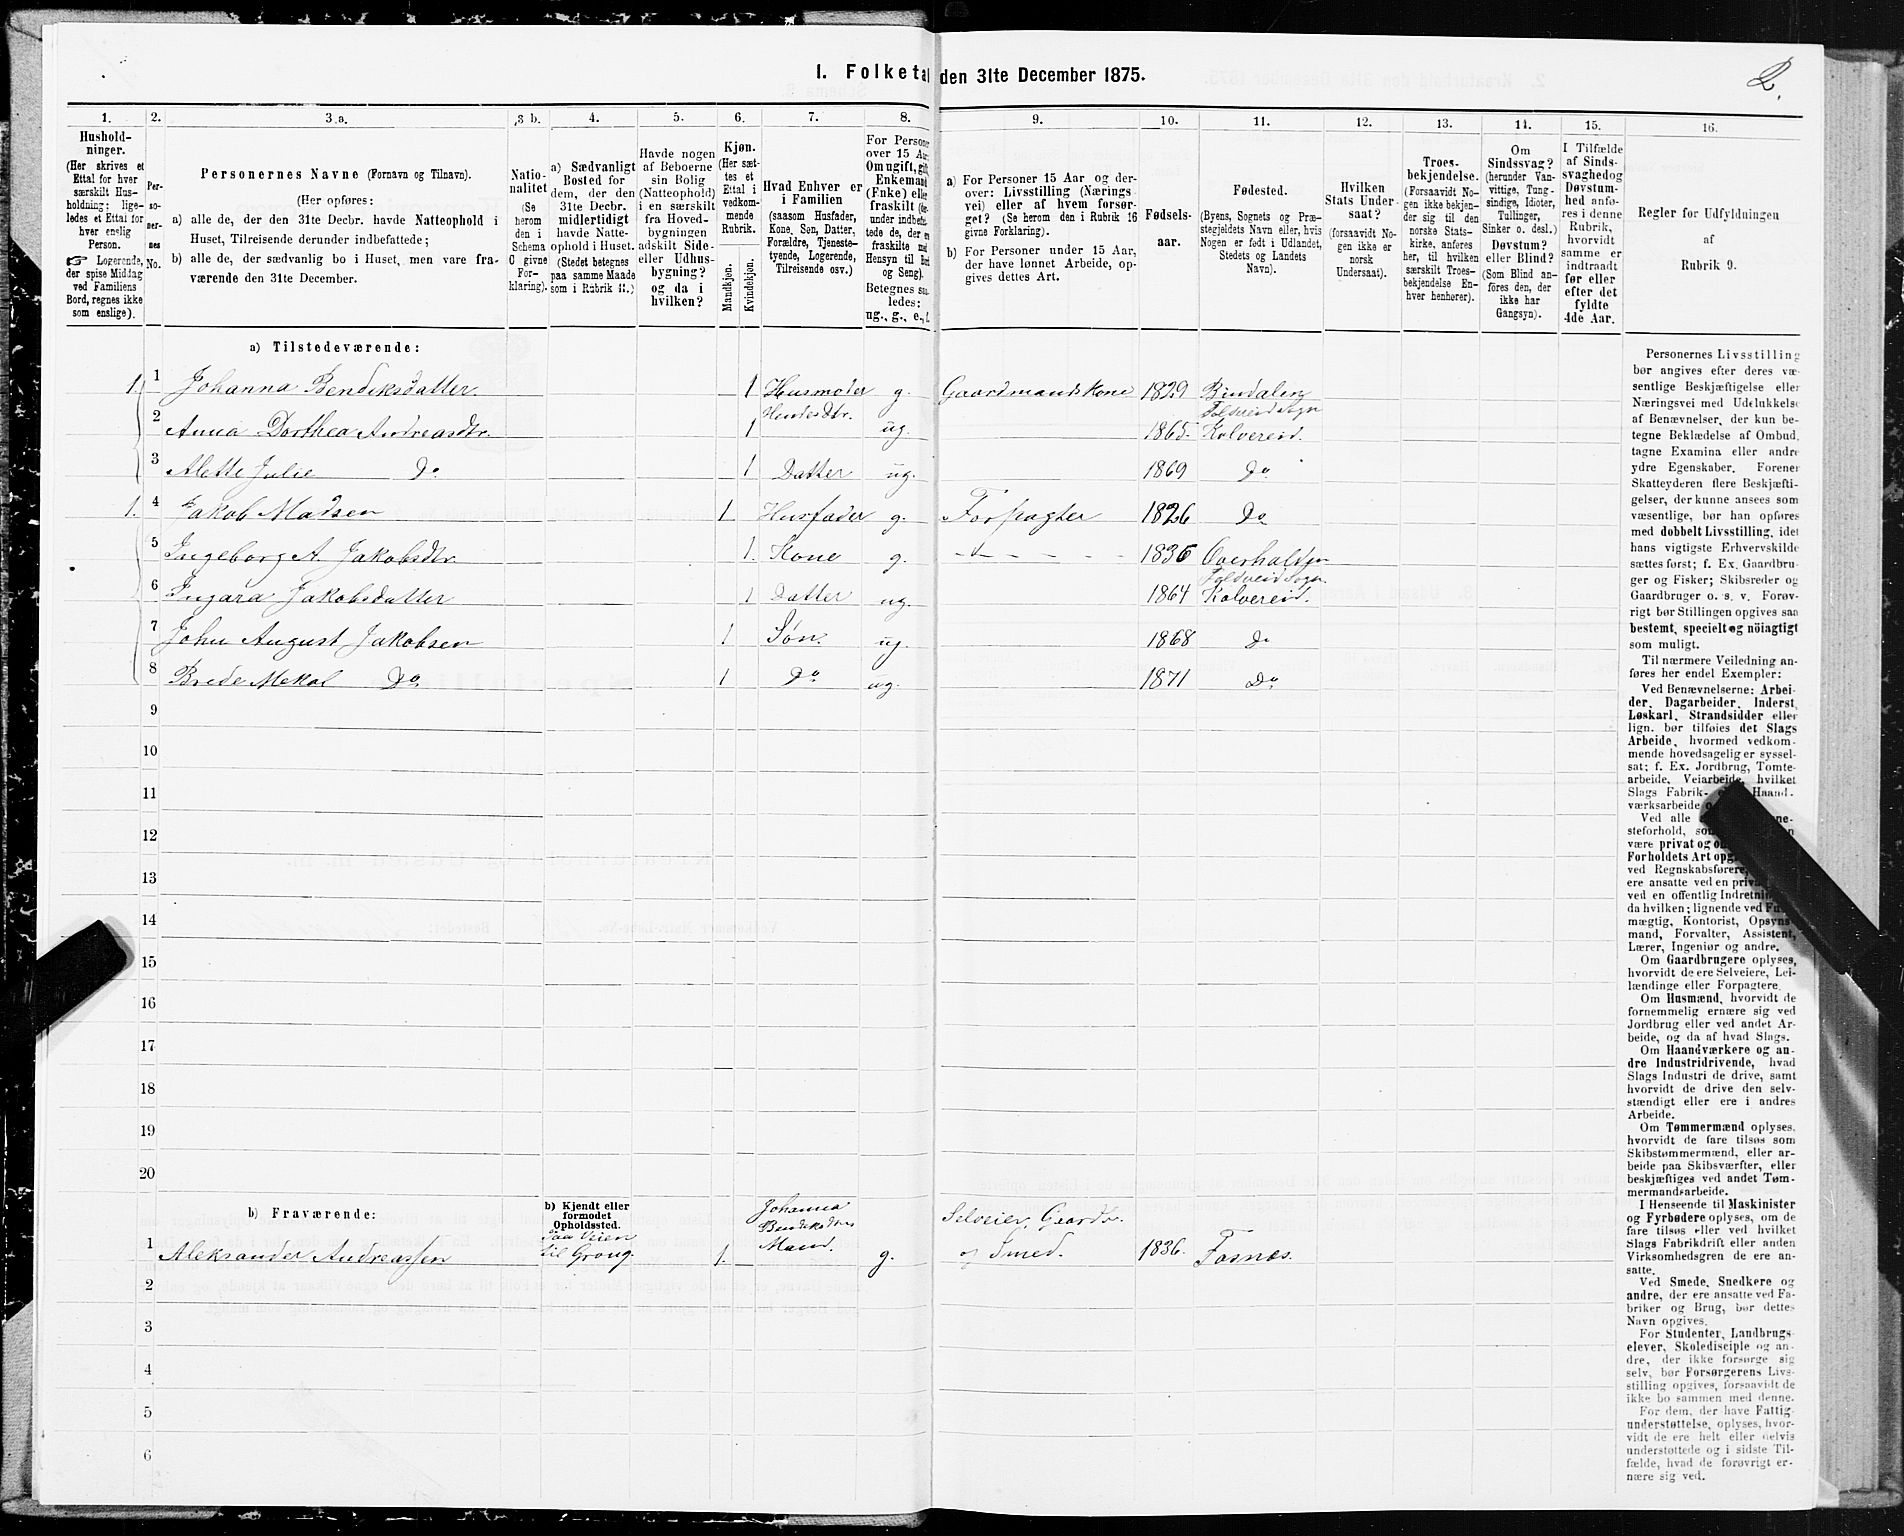 I. Folketal den 31te December 1875.
2.
1.
2.
3 a.
3 b.
4.
5.
6.
7.
8.
9.
10.
11.
12.
13.
14.
15.
16.
Hushold-
ninger.
(Her skrives et
Ettal for hver
særskilt Hus-
holdning; lige-
ledes et Ettal for
hver enslig
Person.
☞ Logerende,
der spise Middag
ved Familiens
Bord, regnes ikke
som enslige).
Per-
so-
ner-
nes
No.
Personernes Navne (Fornavn og Tilnavn).
(Her opføres:
a) alle de, der den 31te Decbr. havde Natteophold i
Huset, Tilreisende derunder indbefattede;
b) alle de, der sædvanlig bo i Huset, men vare fra-
værende den 31te December.
Natio-
nalitet
(Se
herom
den i
Schema
C givne
For-
klaring).
a) Sædvanligt
Bosted for
dem, der den
31te Decbr.
midlertidigt
havde Natte-
ophold i Huset.
(Stedet betegnes
paa samme Maade
som i Rubrik 11.)
Havde nogen
af Beboerne
sin Bolig
(Natteophold)
i en særskilt
fra Hoved-
bygningen
adskilt Side-
eller Udhus-
bygning?
og da i
hvilken?
Kjøn.
(Her sæt-
tes et
Ettal i
vedkom-
mende
Rubrik.
Mandkjøn.
Kvindekjøn.
Hvad Enhver er
i Familien
(saasom Husfader,
Kone, Søn, Datter,
Forældre, Tjeneste-
tyende, Logerende,
Tilreisende osv.)
For Personer
over 15 Aar:
Om ugift, gift,
Enkemand
(Enke) eller
fraskilt
Betegnes saa-
ledes:
ug., g., e., f.
a) For Personer 15 Aar og der-
over: Livsstilling (Nærings-
vei) eller af hvem forsør-
get? (Se herom den i Rubrik 16
givne Forklaring).
b) For Personer under 15 Aar,
der have lønnet Arbeide, op-
gives dettes Art.
Fødsels-
aar.
Fødested.
(Byens, Sognets og Præ-
stegjeldets Navn eller, hvis
Nogen er født i Udlandet,
Stedets og Landets
Navn).
Hvilken
Stats Under-
saat?
(forsaavidt No-
gen ikke er
norsk
Undersaat).
Troes-
bekjendelse.
(Forsaavidt No-
gen ikke bekjen-
der sig til den
norske Stats-
kirke, anføres
her, til hvilken
særskilt Troes-
bekjendelse En-
hver henhører).
Om
Sindssvag?
(herunder Van-
vittige, Tung-
sindige, Idioter,
Tullinger,
Sinker o. desl.)
Døvstum?
eller Blind?
(Som Blind an-
føres den, der
ikke har
Gangsyn).
I Tilfælde
af Sinds-
svaghed og
Døvstum-
hed anfø-
res i denne
Rubrik,
hvorvidt
samme er
indtraadt
før eller
efter det
fyldte
4de Aar.
Regler for Udfyldningen
af
Rubrik 9.
a) Tilstedeværende:
1. 1 Johanna Bendiksdatter 1 Husmoder g. Gaardmandskone 1829 Bindalen
2 Anna Dorthea Andreasdtr. 1 Hendes Dtr. ug. 1865. Foldereid Sogn Kolvereid.
3 Alette Julie Do 1 Datter ug. 1869 Do
1. 4 Jakob Madsen 1 Husfader g. Forpagter 1826 Do
5 Ingeborg A. Jakobsdtr. 1. Kone g. 1836 Overhalden
6 Ingara Jakobsdatter 1 Datter ug. 1864 Foldereid Sogn. Kolvereid.
7 John August Jakobsen 1 Søn. ug. 1868 Do
8 Brede Mekal Do 1 Do ug. 1871 Do
9
10
11
12
13
14
15
16
17
18
19
20
b) Fraværende:
b) Kjendt eller
formodet
Opholdssted.
1 Aleksander Andreassen Paa Veien til Grong. 1. Johanna Bendiksdtrs Mand. g. Selveier, Gaardbr. og Smed. 1836. Fosnæs.
2
3
4
5
6
Personernes Livsstilling
bør angives efter deres væ-
sentlige Beskjæftigelse eller
Næringsvei med Udelukkelse
af Benævnelser, der kun be-
tegne Beklædelse af Ombud,
tagne Examina eller andre
ydre Egenskaber. Forener
Skatteyderen flere Beskjæfti-
gelser, der kunne ansees som
væsentlige, bør han opføres
med dobbelt Livsstilling, idet
hans vigtigste Erhvervskilde
sættes først; f. Ex. Gaardbru-
ger og Fisker; Skibsreder og
Gaardbruger o. s. v. Forøv-
rigt bør Stillingen opgives saa
bestemt, specielt og nöiagtigt
som muligt.
Til nærmere Veiledning an-
føres her endel Exempler:
Ved Benævnelserne: Arbei-
der, Dagarbeider, Inderst,
Løskarl, Strandsidder eller
lign. bør tilføies det Slags
Arbeide, hvormed vedkom-
mende hovedsagelig er syssel-
sat; f. Ex. Jordbrug, Tomte-
arbeide, Veiarbeide, hvilket
Slags Fabrik- Haand-
værksarbeide
Ved alle
steforhold,
være privat og
Forholdets Art
ved Regnskabsførere,
ere ansatte ved en
ved en offentlig Indretning
da hvilken; lignende ved
mægtig, Kontorist, Opsyns-
mand, Forvalter, Assistent,
Lærer, Ingeniør og andre.
Om Gaardbrugere oplyses,
hvorvidt de ere Selveiere, Lei-
lændinge eller Forpagtere.
Om Husmænd, hvorvidt de
fornemmelig ernære sig ved
Jordbrug eller ved andet Ar-
beide, og da af hvad Slags.
Om Haandværkere og an-
dre Industridrivende, hvad
Slags Industri de drive, samt
hvorvidt de drive den selv-
stændigt eller ere i andres
Arbeide.
Om Tømmermænd oplyses,
hvorvidt de fare tilsøs som
Skibstømmermænd, eller ar-
beide paa Skibsværfter, eller
beskjæftiges ved andet Tøm-
mermandsarbeide.
I Henseende til Maskinister
og Fyrbødere oplyses, om de
fare tilsøs eller ved hvilket
Slags Fabrikdrift eller anden
Virksomhedsgren de ere an-
satte.
Ved Smede, Snedkere og
andre, der ere ansatte ved Fa-
briker og Brug, bør dettes
Navn opgives.
For Studenter, Landbrugs-
elever, Skoledisciple og an-
dre, der ikke forsørge sig
selv, bør Forsørgerens Livs-
stilling opgives, forsaavidt de
ikke bo sammen med denne.
For dem, der have Fattig-
understøttelse, oplyses, hvor-
vidt de ere helt eller delvis
understøttede og i sidste Til-
fælde, hvad de forøvrigt er-
nære sig ved.